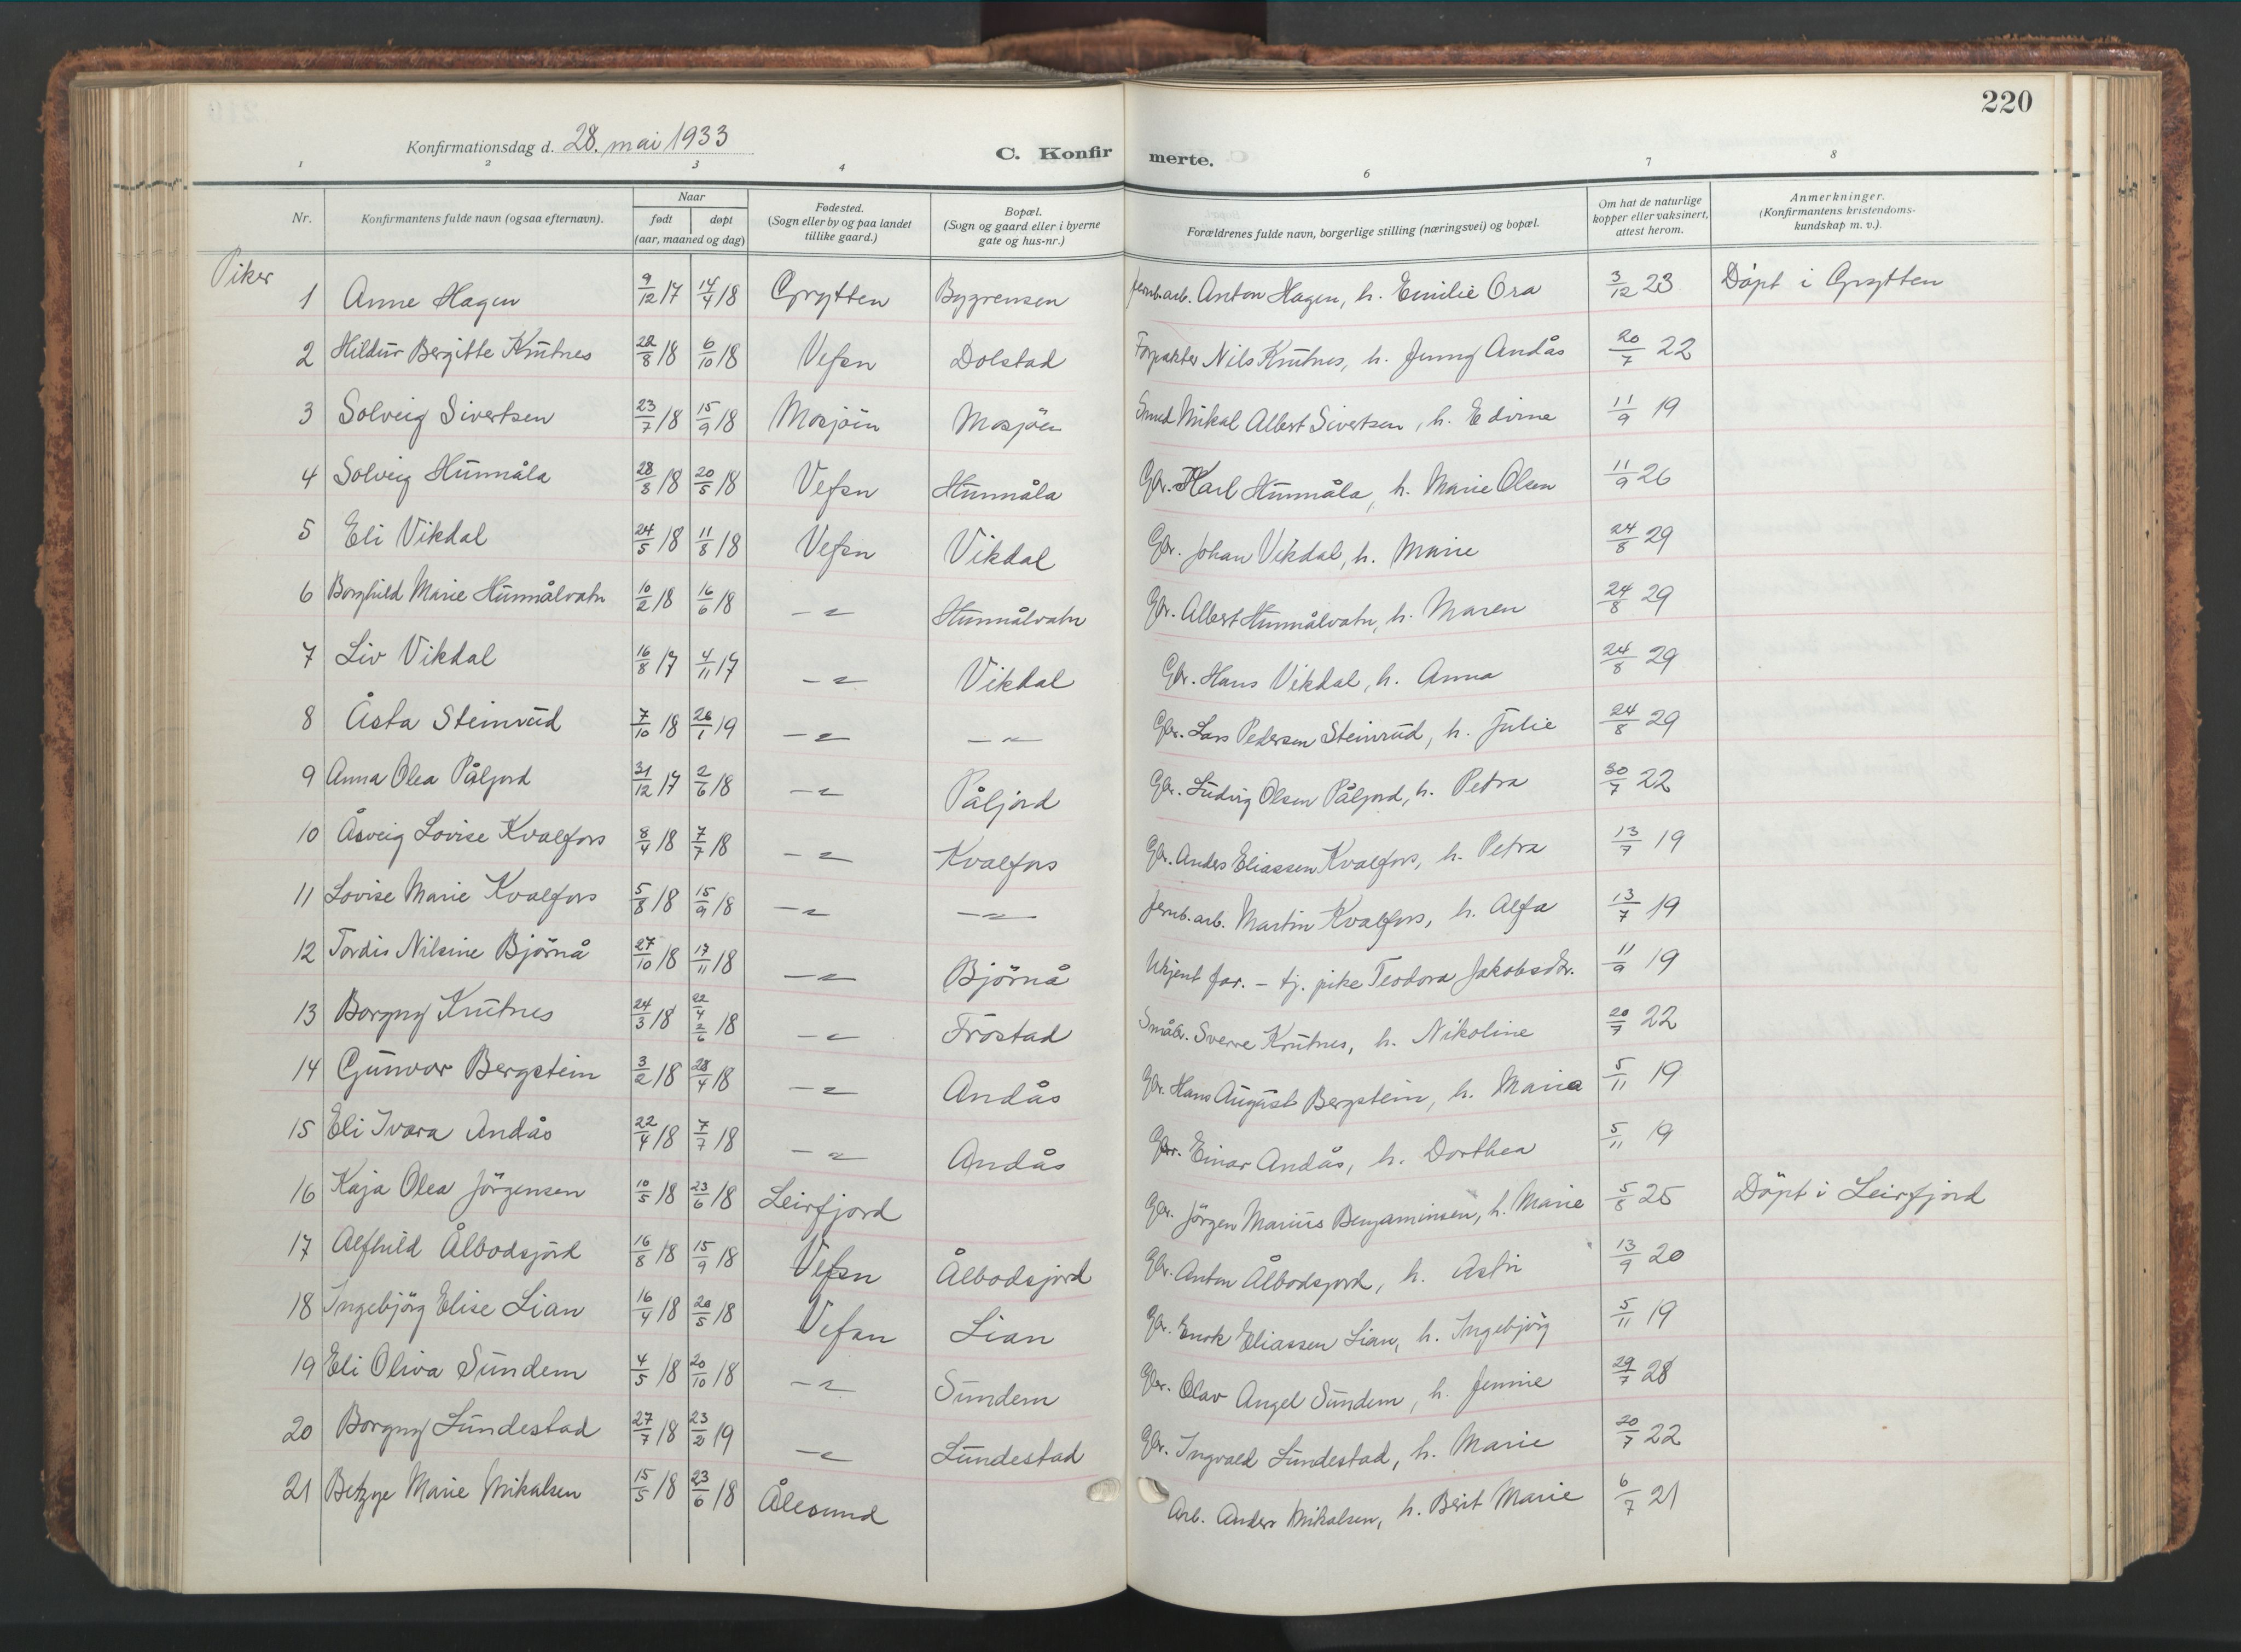 220
Konfirmationsdag d. 28. mai 1933
C. Konfirmerte.
1 2 3 4 6 7 8
Nr. | Konfirmantens fulde navn (ogsaa efternavn). | Naar født døpt (aar, maaned og dag) | Fødested. (Sogn eller by og paa landet tillike gaard.) | Bopæl. (Sogn og gaard eller i byerne gate og hus-nr.) | Forældrenes fulde navn, borgerlige stilling (næringsvei) og bopæl. | Om hat de naturlige kopper eller vaksinert, attest herom. | Anmerkninger. (Konfirmantens kristendoms-kundskap m. v.).
Piker
1 Anne Hagen 9/12 17 14/4 18 Grytten Bygrensen Jernb.arb. Anton Hagen, h. Emilie Ora 3/12 23 Döpt i Grytten
2 Hildur Bergitte Krutnes 22/8 18 6/10 18 Vefsn Dolstad Forpakter Nils Krutnes, h. Jenny Andås 20/7 22
3 Solveig Sivertsen 23/7 18 15/9 18 Mosjöen Mosjöen Smed Mikal Albert Sivertsen, h. Edvine 11/9 19
4 Solveig Hunnåla 28/3 18 20/5 18 Vefsn Hunnåla Gbr. Karl Hunnåla, h. Marie Olsen 11/9 26
5 Eli Vikdal 24/5 18 11/8 18 Vefsn Vikdal Gbr. Johan Vikdal, h. Marie 24/8 29
6 Borghild Marie Hunnålvatn 10/2 18 16/6 18 -"- Hunnålvatn Gbr. Albert Hunnålvatn, h. Maren 24/8 29
7 Liv Vikdal 16/8 17 4/11 17 -"- Vikdal Gbr. Hans Vikdal, h. Anna 24/8 29
8 Åsta Steinrud 7/10 18 26/1 19 -"- -"- Gbr. Lars Pedersen Steinrud, h. Julie 24/8 29
9 Anna Olea Påljord 31/12 17 2/6 18 -"- Påljord Gbr. Ludvig Olsen Påljord, h. Petra 30/7 22
10 Åsveig Lovise Kvalfors 8/4 18 7/7 18 -"- Kvalfors Gbr. Anders Eliassen Kvalfors, h. Petra 13/7 19
11 Lovise Marie Kvalfors 5/8 18 15/9 18 -"- -"- Jernb.arb. Martin Kvalfors, h. Alfa 13/7 19
12 Tordis Nilsine Björnå 27/10 18 17/11 18 -"- Björnå Ukjent far. - tj. pike Teodora Jakobsdtr. 11/9 19
13 Borgny Krutnes 24/3 18 22/4 2/6 18 -"- Fröstad Småbr. Sverre Krutnes, h. Nikoline 20/7 22
14 Gunvor Bergstein 3/2 18 28/4 18 -"- Andås Gbr. Hans August Bergstein, h. Maria 5/11 19
15 Eli Ivara Andås 22/4 18 7/7 18 -"- Andås Gbr. Einar Andås, h. Dorthea 5/11 19
16 Kaja Olea Jörgensen 10/5 18 23/6 18 Leirfjord Gbr. Jörgen Marius Benjaminsen, h. Marie 5/8 25 Döpt i Leirfjord
17 Alfhild Ålbodsjord 16/8 18 15/9 18 Vefsn Ålbodsjord Gbr. Anton Ålbodsjord, h. Astri 13/9 20
18 Ingebjörg Elise Lian 16/4 18 20/5 18 Vefsn Lian Gbr. Enok Eliassen Lian, h. Ingebjörg 5/11 19
19 Eli Oliva Sundem 4/5 18 20/10 18 -"- Sundem Gbr. Olav Angel Sundem, h. Jennie 29/7 28
20 Borgny Lundestad 27/7 18 23/2 19 -"- Lundestad Gbr. Ingvald Lundestad, h. Marie 20/7 22
21 Marie Mikalsen 15/5 18 23/6 18 Ålesund Arb. Anders Mikalsen, h. Berit Marie 6/7 21